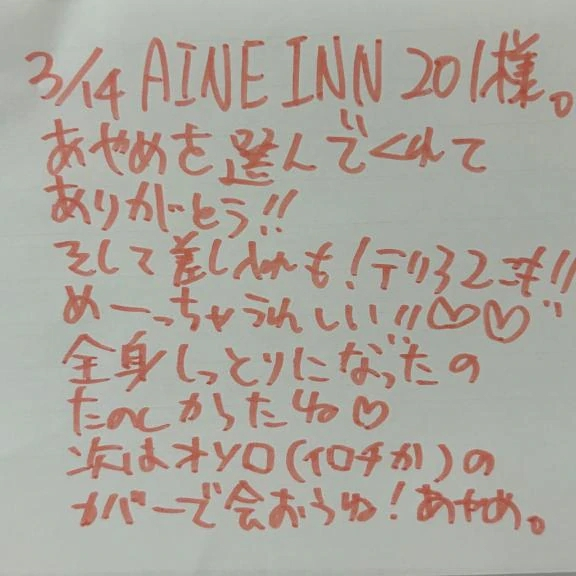 3/14 AINE INN 201様。
あやめを選んでくれて
ありがとう!!
そして差し入れも!テリろ2こも!!
めーっちゃうれしいい!!♡♡
全身しっとりになったの
たのしかったね♡
次はオソロ(イロチか)の
カバーで会おうね!あやめ。